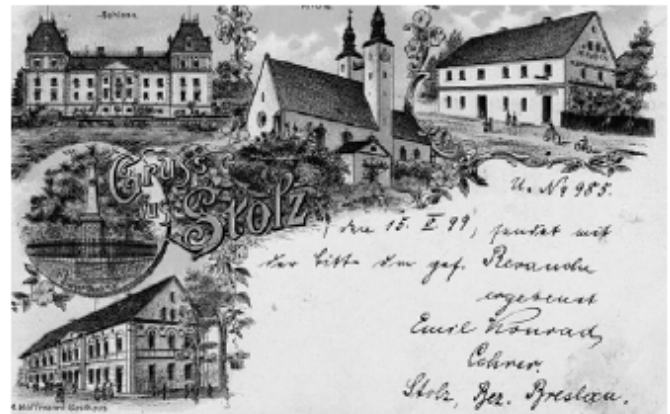 Schloss.
Gruss
aus
Stolz
U. No 985.
den 15. X 99, sendet mit
der Bitte um gef. Revanche
ergebenst
Emil Konrad,
Lehrer.
Stolz, Bez. Breslau.
Gasthaus